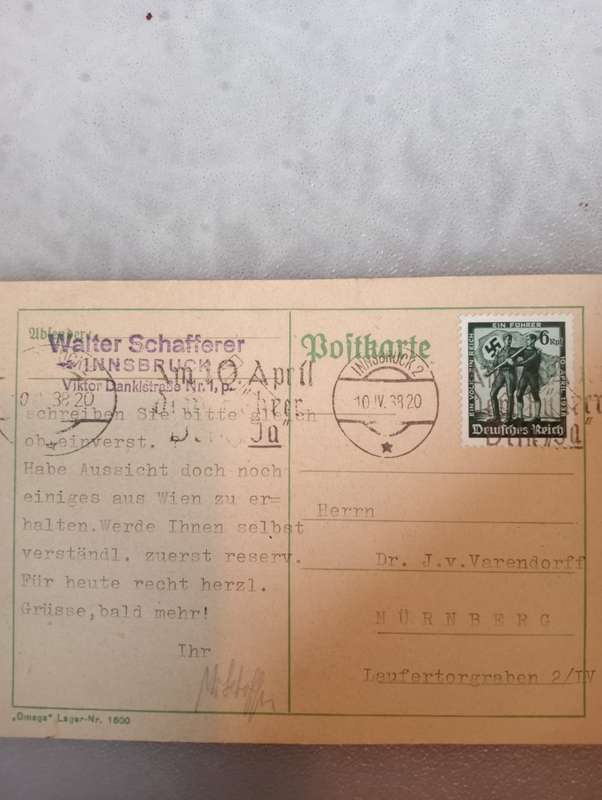 Absender:
Walter Schafferer
INNSBRUCK
Viktor Danklstraße Nr. 1, p.
Am 10. April
dem Führer
Dein "Ja"
38 20
schreiben Sie bitte gleich
ob einverst.
Habe Aussicht doch noch
einiges aus Wien zu er=
halten.Werde Ihnen selbst
verständl. zuerst reserv.
Für heute recht herzl.
Grüsse,bald mehr!
Ihr
„Omega" Lager-Nr. 1600
Postkarte
INNSBRUCK 2
10.IV.38 20
EIN FÜHRER
EIN VOLK EIN REICH
10. APRIL 1938
6 Rpf
Deutsches Reich
Herrn
Dr. J.v.Varendorff
NÜRNBERG
Laufertorgraben 2/IV